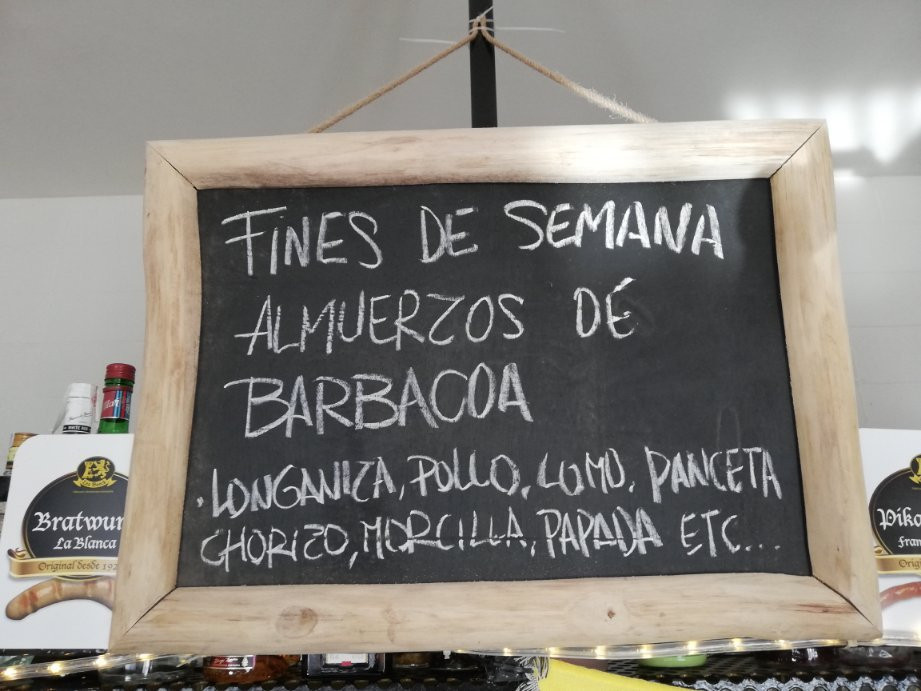 FINES DE SEMANA
ALMUERZOS DÉ
BARBACOA
.LONGANIZA, POLLO, LOMO, PANCETA
CHORIZO, MORCILLA, PAPADA ETC....
Bratwur
La Blanca
Original desde 192
Pika
Fran
Orig